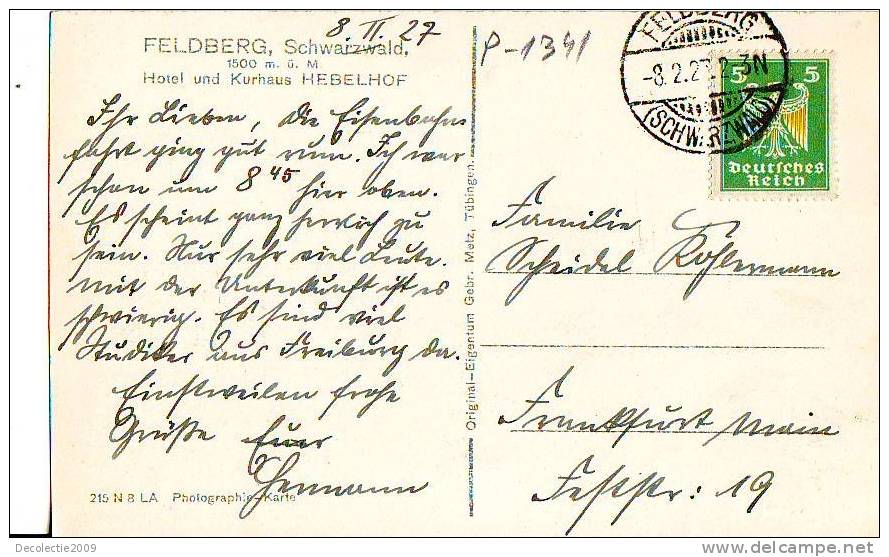 8. II. 27
P-1341
FELDBERG, Schwarzwald,
1500 m. ü. M
Hotel und Kurhaus HEBELHOF
Ihr Lieben, die Eisenbahn
fahrt ging gut rum. Ich war
schon um 8 45 hier oben.
Es scheint ganz herrlich zu
sein. Nur sehr viel Leute.
Mit der Unterkunft ist es
schwierig. Es sind viel
Studiker aus Freiburg da.
Einstweilen frohe
Grüße Euer
Hermann
215 N 8 LA Photographie-Karte
Original-Eigentum Gebr. Metz, Tübingen.
FELDBERG
-8.2.27. 2-3N
(SCHWARZWALD)
5 5
Deutsches
Reich
Familie
Scheidel Kohlermann
Frankfurt Main
Feststr: 19
Decolectie2009
delcampe.net